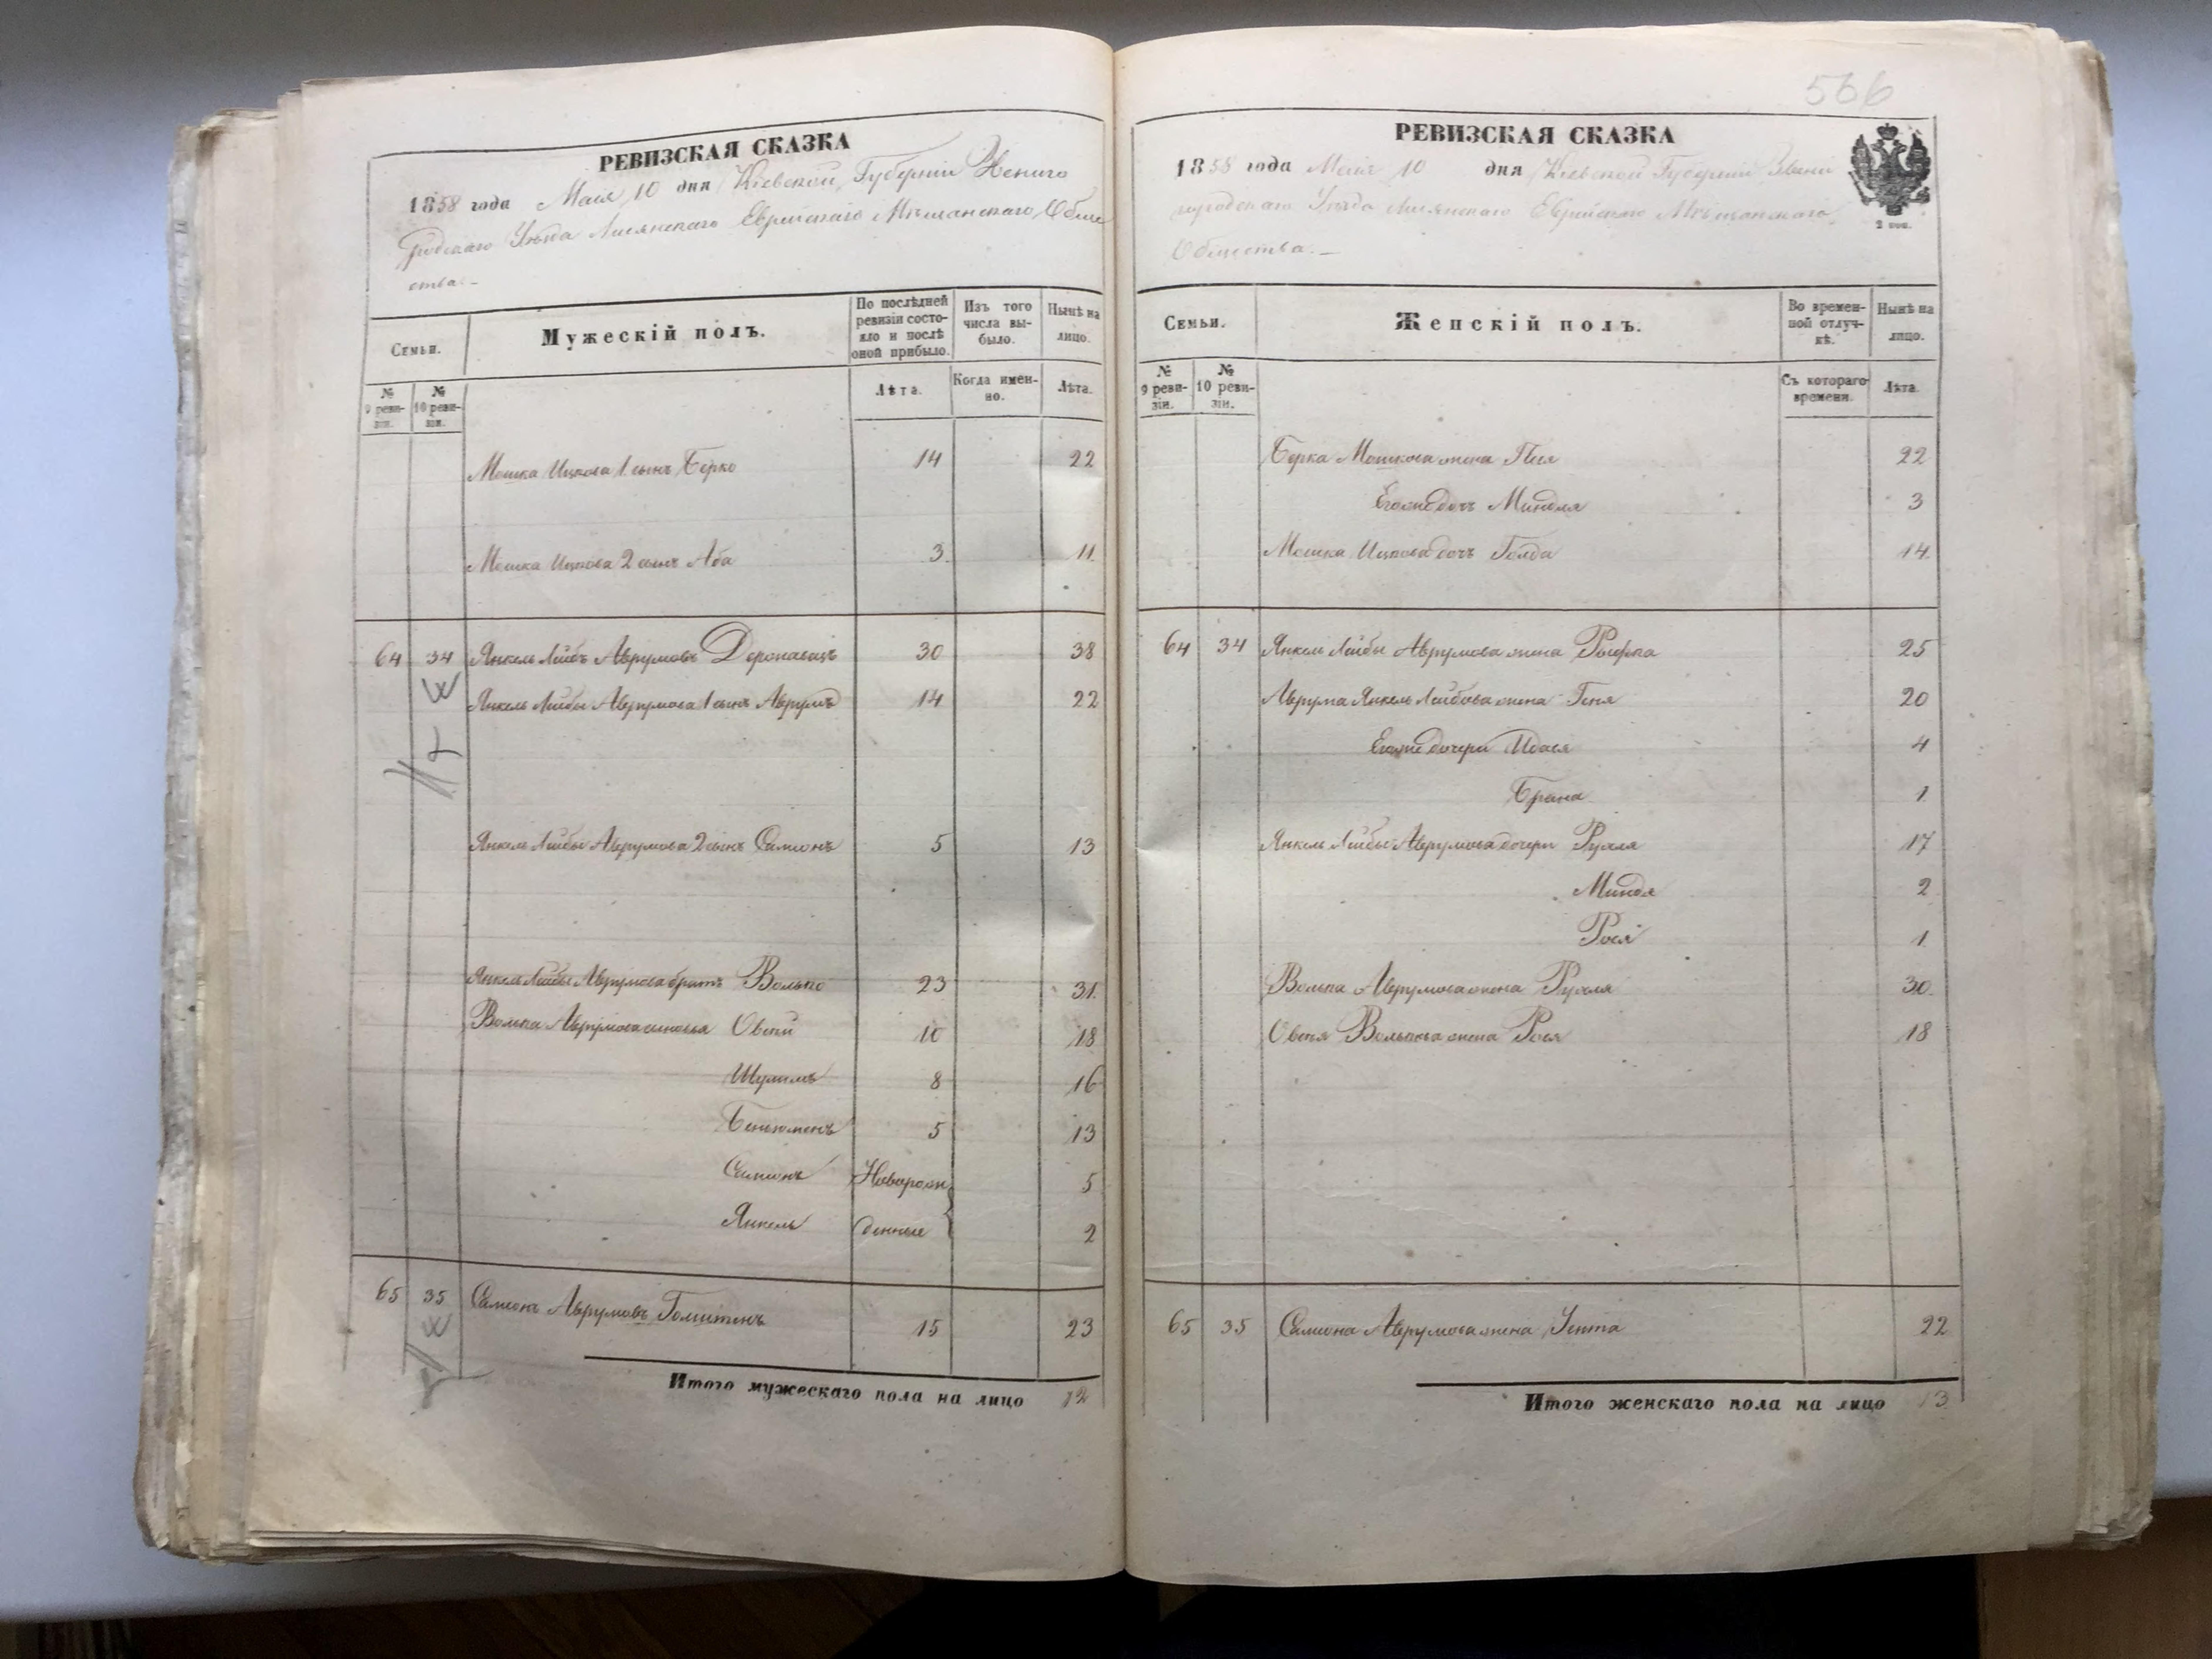 566
РЕВИЗСКАЯ СКАЗКА
1858 года Маія 10 дня Кіевской Губерніи Звениго
родскаго Уѣзда Лисянскаго Еврейскаго Мѣщанскаго Обще
ства.-
Семьи.
Мужескій полъ.
По послѣдней ревизіи состояло и послѣ оной прибыло.
Изъ того числа выбыло.
Нынѣ на лицо.
№ 9 ревизіи.
№ 10 ревизіи.
Лѣта.
Когда именно.
Лѣта.
Мошка Ицкова 1 сынъ Берко 14 22
Мошка Ицкова 2 сынъ Аба 3 11
64 34 Янкель Лейбъ Аврумовъ 30 38
Янкель Лейбы Аврумова 1 сынъ Аврумъ 14 22
Янкель Лейбы Аврумова 2 сынъ Симионъ 5 13
Янкель Лейбы Аврумова братъ Волько 23 31
Волька Аврумова сыновья Овсей 10 18
Шулимъ 8 16
Беньюменъ 5 13
Симионъ Новорож 5
Янкель денные 2
65 35 Симионъ Аврумовъ 15 23
Итого мужескаго пола на лицо 12
РЕВИЗСКАЯ СКАЗКА
1858 года Маія 10 дня Кіевской Губерніи Звени
городскаго Уѣзда Лисянскаго Еврейскаго Мѣщанскаго
Общества.-
2 коп.
Семьи.
Женскій полъ.
Во временной отлучкѣ.
Нынѣ на лицо.
№ 9 ревизіи.
№ 10 ревизіи.
Съ котораго времени.
Лѣта.
Берка Мошкова жена Песя 22
Егоже дочь Миндля 3
Мошка Ицкова дочь Голда 14
64 34 Янкель Лейбы Аврумова жена 25
Аврума Янкель Лейбова жена Геня 20
Егоже дочери Идася 4
Брана 1
Янкель Лейбы Аврумова дочери Рухля 17
Миндя 2
Рося 1
Волька Аврумова жена Рухля 30
Овсея Волькова жена Рося 18
65 35 Симиона Аврумова жена Уента 22
Итого женскаго пола на лицо 13